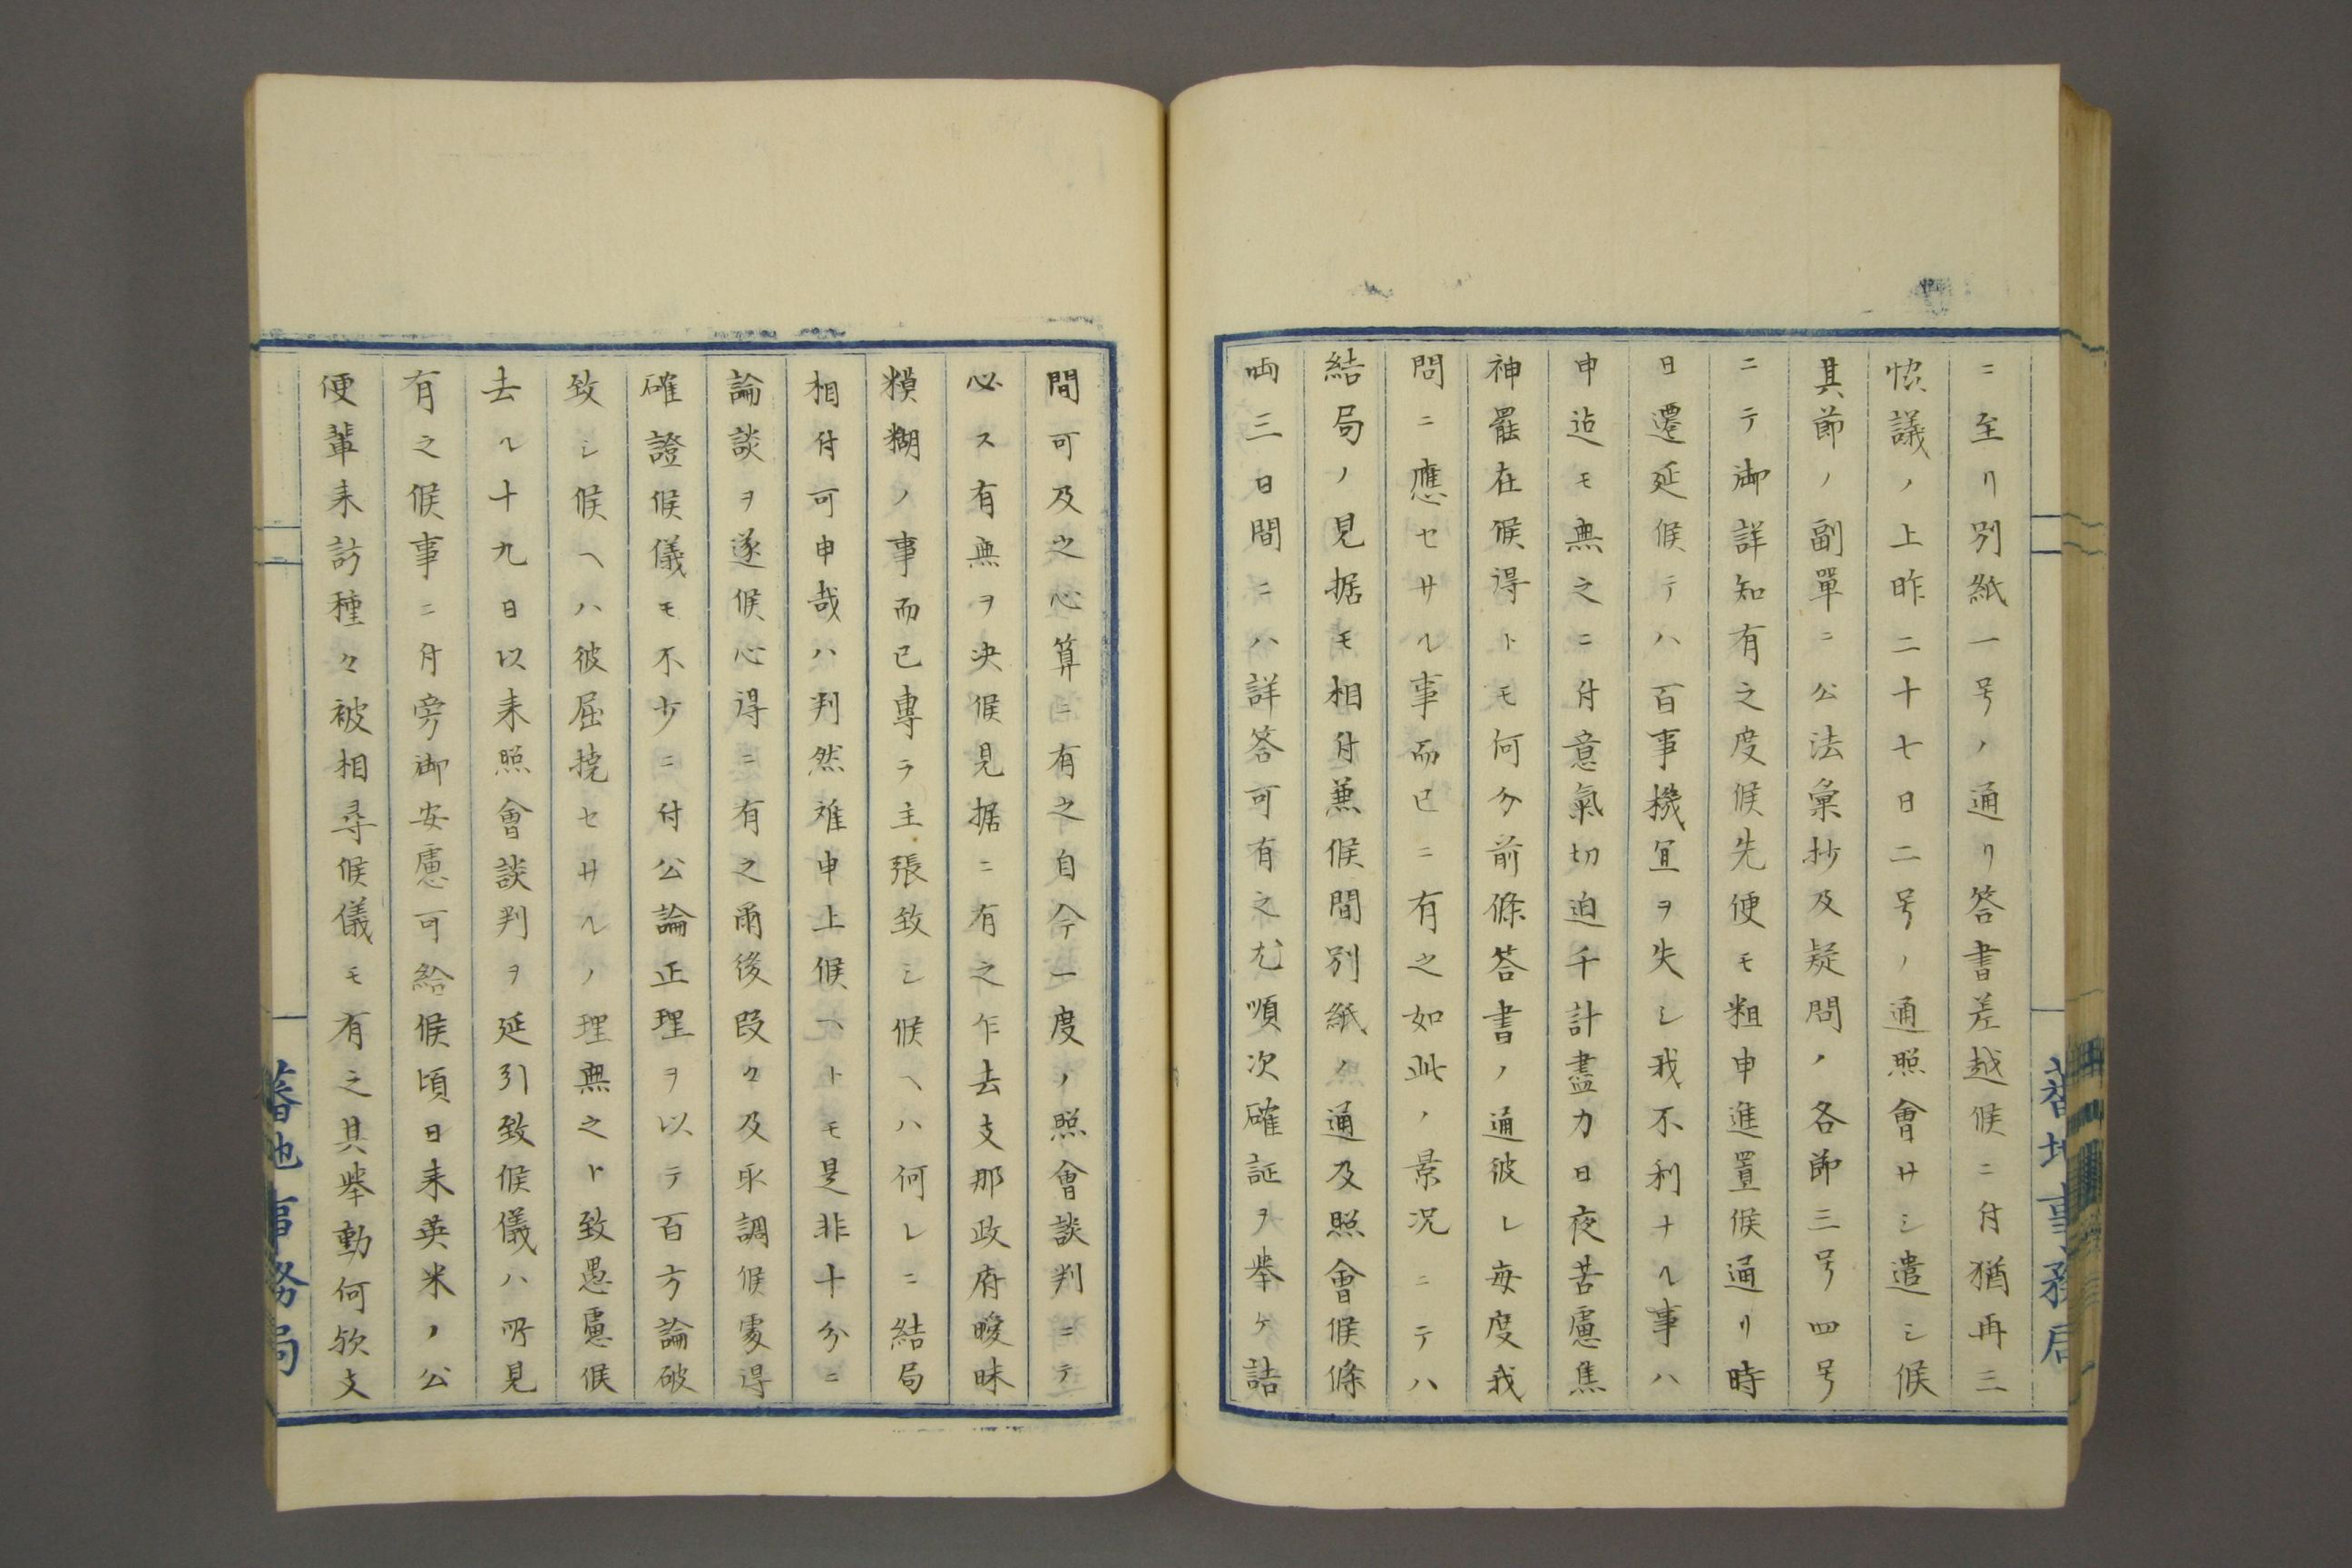 ニ至リ別紙一号ノ通リ答書差越候ニ付猶再三
恊議ノ上昨二十七日二号ノ通照會サシ遣シ候
其節ノ副單ニ公法彙抄及疑問ノ各節三号四号
ニテ御詳知有之度候先便モ粗申進置候通リ時
日遷延候テハ百事機宜ヲ失シ我不利ナル事ハ
申迠モ無之ニ付意氣切迫千計盡力日夜苦慮焦
神罷在候得トモ何分前條答書ノ通彼レ毎度我
問ニ應セサル事而已ニ有之如此ノ景況ニテハ
結局ノ見据モ相付兼候間別紙ノ通及照會候條
両三日間ニハ詳答可有之尤順次確証ヲ挙ケ詰
間可及之心算ニ有之自今一度ノ照會談判ニテ
必ス有無ヲ决候見据ニ有之乍去支那政府曖昧
糢糊ノ事而已專ラ主張致シ候ヘハ何レニ結局
相付可申哉ハ判然難申上候ヘトモ是非十分ニ
論談ヲ遂候心得ニ有之爾後段々及取調候處得
確證候儀モ不少ニ付公論正理ヲ以テ百方論破
致シ候ヘハ彼屈撓セサルノ理無之ト致愚慮候
去ル十九日以来照會談判ヲ延引致候儀ハ所見
有之候事ニ付旁御安慮可給候頃日来英米ノ公
使輩来訪種々被相尋候儀モ有之其挙動何欤支
蕃地事務局
蕃地事務局